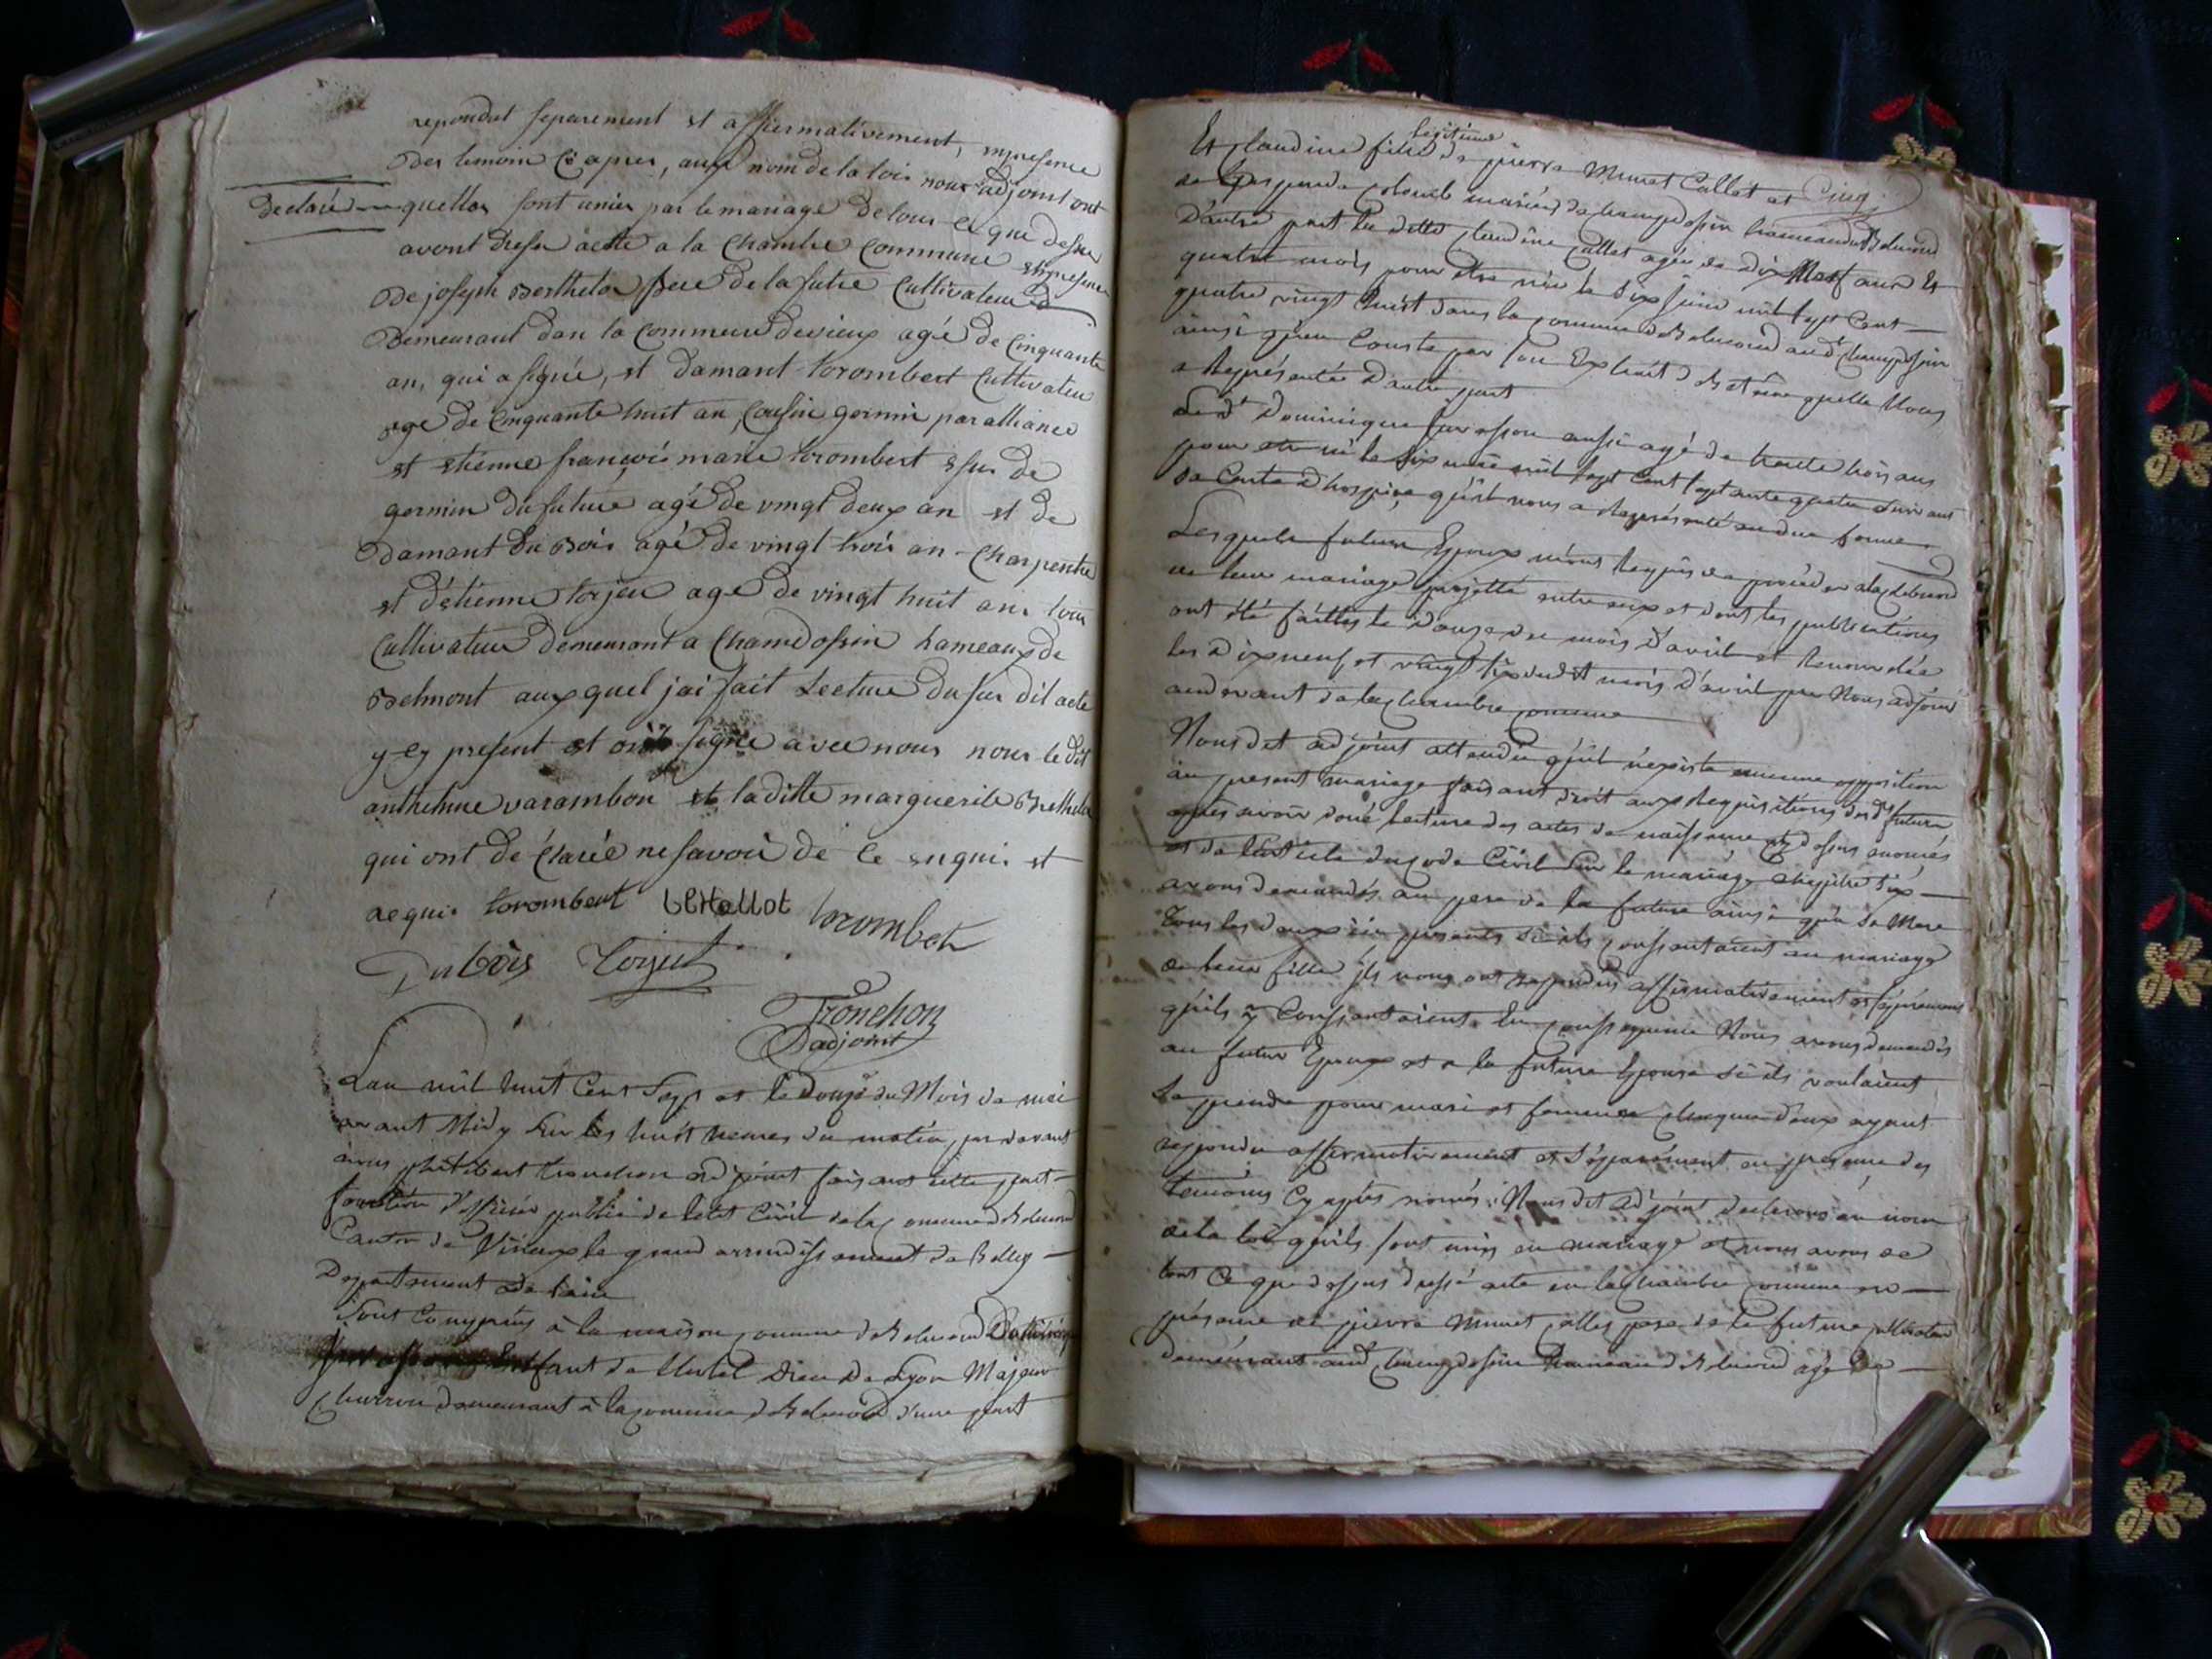 repondut separement et affirmativement, en presence
des temoin Cé apres, aux nom de la loi nous adjoint ont
declaré quettes sont unies par le mariage de tous ce que dessus
avont dressé acte a la Chambre Commune en presence
de joseph Berthelot pere de la future Cultivateur
demeurant dan la Commune de vieux agé de Cinquante
an, qui a signé, et damant torombert Cultivateur
age de Cinquante huit an, Cousin germin par alliance
et etienne françois marie torombert de
germin du future agé de vingt deux an et de
damant Du Bois agé de vingt trois an Charpentie
et d'etienne torjeu age de vingt huit an. tous
Cultivateur demeurant a Chamdossin hameaux de
Belmont aux quel j'ai fait Lecture du sus dit acte
y cy present et ont signe avec nous nous le dit
anthelme varambon et la ditte marguerite Berthelot
qui ont dé Clarée ne savoir de Ce enquis et
requi. torombert bertellot torombert
Dubois Torjeu
Tronchon
adjoint
Lan mil huit Cent Sept et le Douze du Mois de mai
avant Midy Sur les huit heures du matin, par devant
nous philibert tronchon adjoint faisant cette part
fonction d'officier public de letat Civil de la Commune de Belmond
Canton de Virieux le grand arrondissement de Belley
Departement de Lain
Sont Comparus à la maison Commune de Belmond Dominique
enfant de l'hotel Dieu de Lyon Majeur
Charron demeurant à la Commune de Belmond d'une part
Et Claudine fille legitime de pierre Munet Callet et
colomb mariés de Champdossin hameau de Belmond
D'autre part la ditte Claudine Callet agée de Dix Neuf ans Et
quatre mois pour etre née le Six juin mil sept Cent
quatre vingt huit dans la Commune de Belmond aud. Champdossin
ainsi quen Conste par Son Extrait de Bateme quelle Nous
a Représentée D'autre part
Le dt Dominique aussi agé de trente trois ans
pour etre né le Six mai mil sept Cent septante quatre Suivant
sa Carte d'hospice qu'il nous a Représenté en due forme
Lesquels futurs Epoux m'ont Requis de proceder a la celebration
de leur mariage projetté entre eux et dont les publications
ont été faittes le Douze du mois d'avril et Renouvelée
les Dix neuf et vingt six dudit mois d'avril par Nous adjoint
audevant de la Chambre Comune
Nous dit adjoint attendu qu'il n'existe aucune opposition
au present mariage faisant Droit aux Requisitions des dts futurs
après avoir doné lecture des actes de naissance cy dessus enoncés
et de l'article du Code Civil Sur le mariage chapitre Six
avons demandés au pere de la future ainsi qu'a Sa Mere
Tous les deux ici presents Si ils Consentoient au mariage
de leur fille ils nous ont repondus affirmativement et séparement
qu'ils y Consentoient. En Consequence Nous avons demandés
au futur Epoux et a la future Epouse Si ils vouloient
Se prendre pour mari et femme chaqun d'eux ayant
repondu affirmativement et Séparément en presence des
temoins Cy après només; Nous dit adjoint declarons au nom
de la loi qu'ils sont unis en mariage et nous avons de
tout Ce que dessus dressé acte en la Chambre Comune en
présence de pierre Munet Callet pere de la future Cultivateur
demeurant aud Champdossin hameau de Belmond agé de